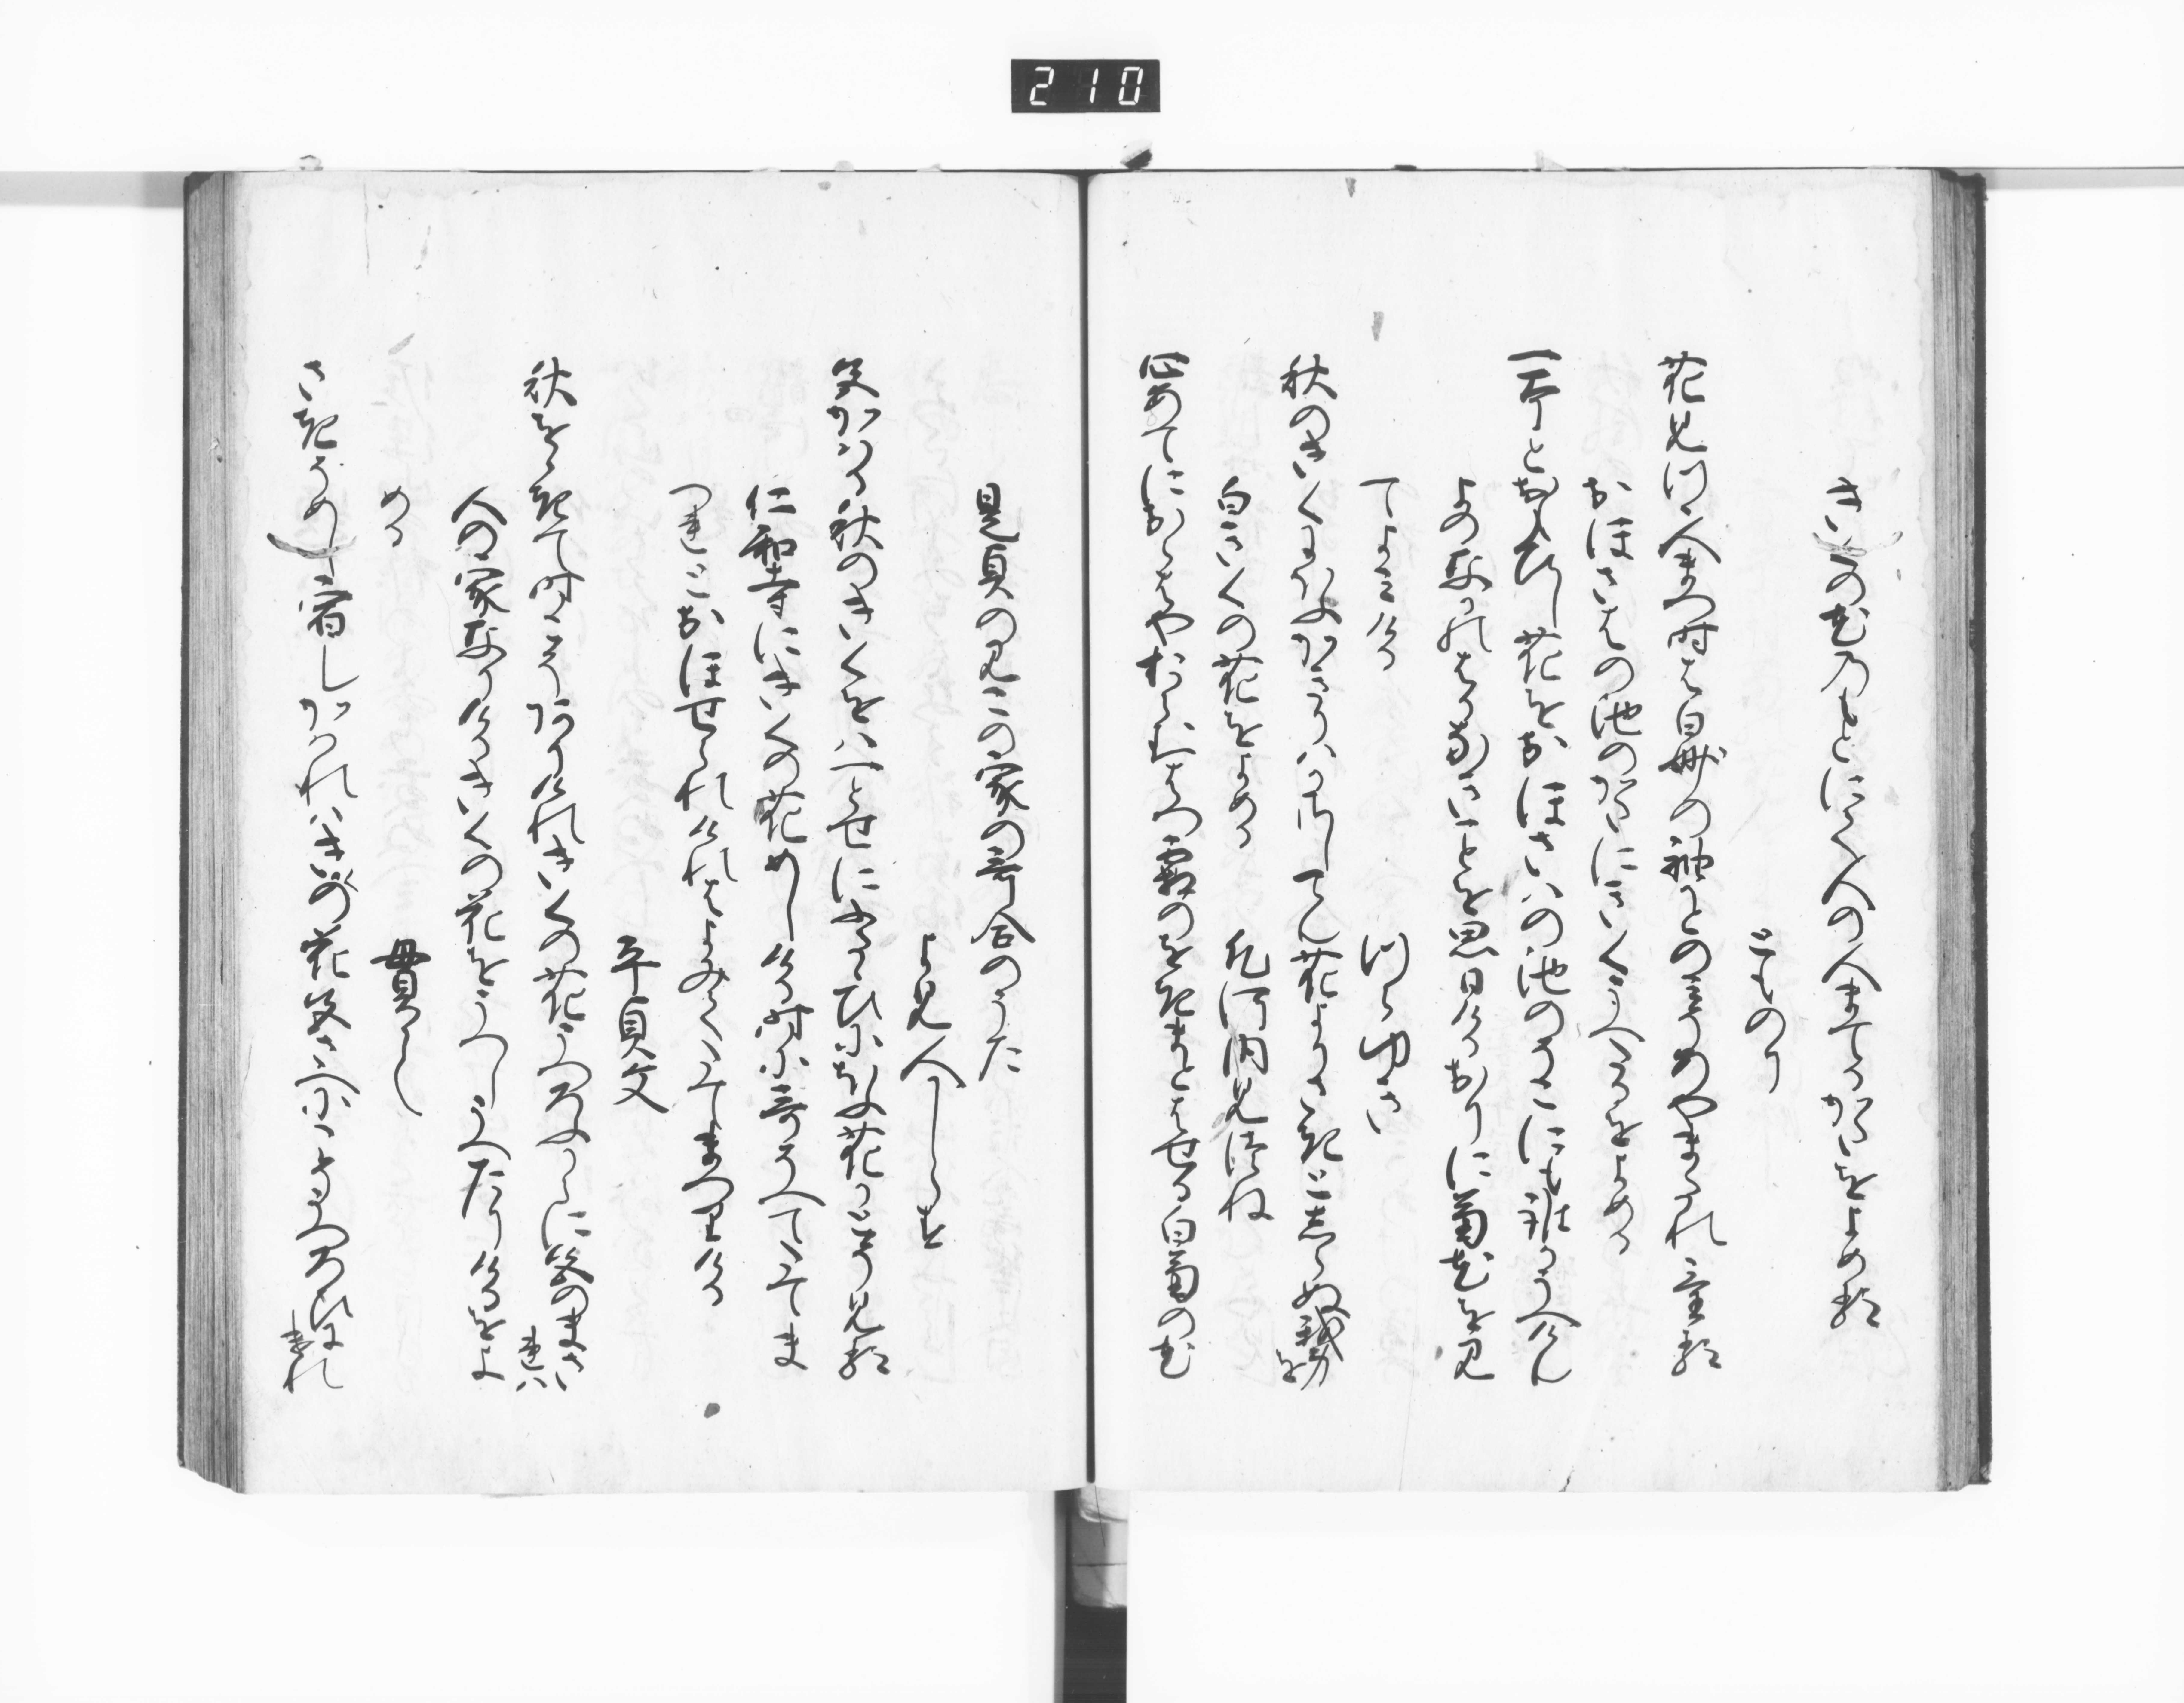 210
きくの花のもとにて人の人まてるかたをよめる
とものり
花見つゝ人まつ時は白妙の袖かとのみそあやまたれける
おほさはの池のかたにきくうへたるをよめる
一本と思ひし花をおほさはの池のそこにも誰かうへけん
よの中のはかなきことを思ひけるおりに菊の花を見
てよみける　　つらゆき
秋のきくにほふかきりはかさしてん花よりさきとしらぬ我身を
白きくの花をよめる　　凡河内みつね
心あてにおらはやおらんはつ霜のをきまとはせる白菊の花
是貞のみこの家の哥合のうた
よみ人しらす
色かはる秋のきくをはひとゝせにふたゝひにほふ花とこそ見れ
仁和寺にきくの花めしける時に哥そへてたてま
つれとおほせられけれはよみてたてまつりける
平貞文
秋をゝきて時こそ有けれきくの花うつろふからに色のまされは
人の家なりけるきくの花をうつしうへたりけるをよ
める
貫之
さきそめし宿しかはれはきくの花色さへにこそうつろひにけれ